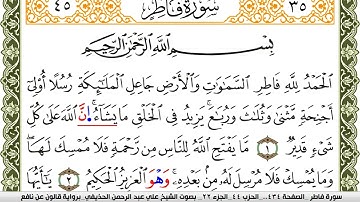 ٣٥ سُورَةُ فَاطِرٍ ٤٥
بِسْمِ اللَّهِ الرَّحْمَٰنِ الرَّحِيمِ
الْحَمْدُ لِلَّهِ فَاطِرِ السَّمَٰوَٰتِ وَالْأَرْضِ جَاعِلِ الْمَلَٰٓئِكَةِ رُسُلًا أُوْلِےٓ
أَجْنِحَةٍ مَّثْنَىٰ وَثُلَٰثَ وَرُبَٰعَ يَزِيدُ فِي الْخَلْقِ مَا يَشَآءُ انَّ اللَّهَ عَلَىٰ كُلِّ
شَيْءٍ قَدِيرٌ ١ مَّا يَفْتَحِ اللَّهُ لِلنَّاسِ مِن رَّحْمَةٍ فَلَا مُمْسِكَ لَهَا
وَمَا يُمْسِكْ فَلَا مُرْسِلَ لَهُ مِنۢ بَعْدِهِ وَهْوَ الْعَزِيزُ الْحَكِيمُ ٢ يَٰٓأَيُّهَا
سورة فاطر الصفحة ٤٣٤... الحزب ٤٤ الجزء ٢٢ بصوت الشيخ علي عبد الرحمن الحذيفي برواية قالون عن نافع